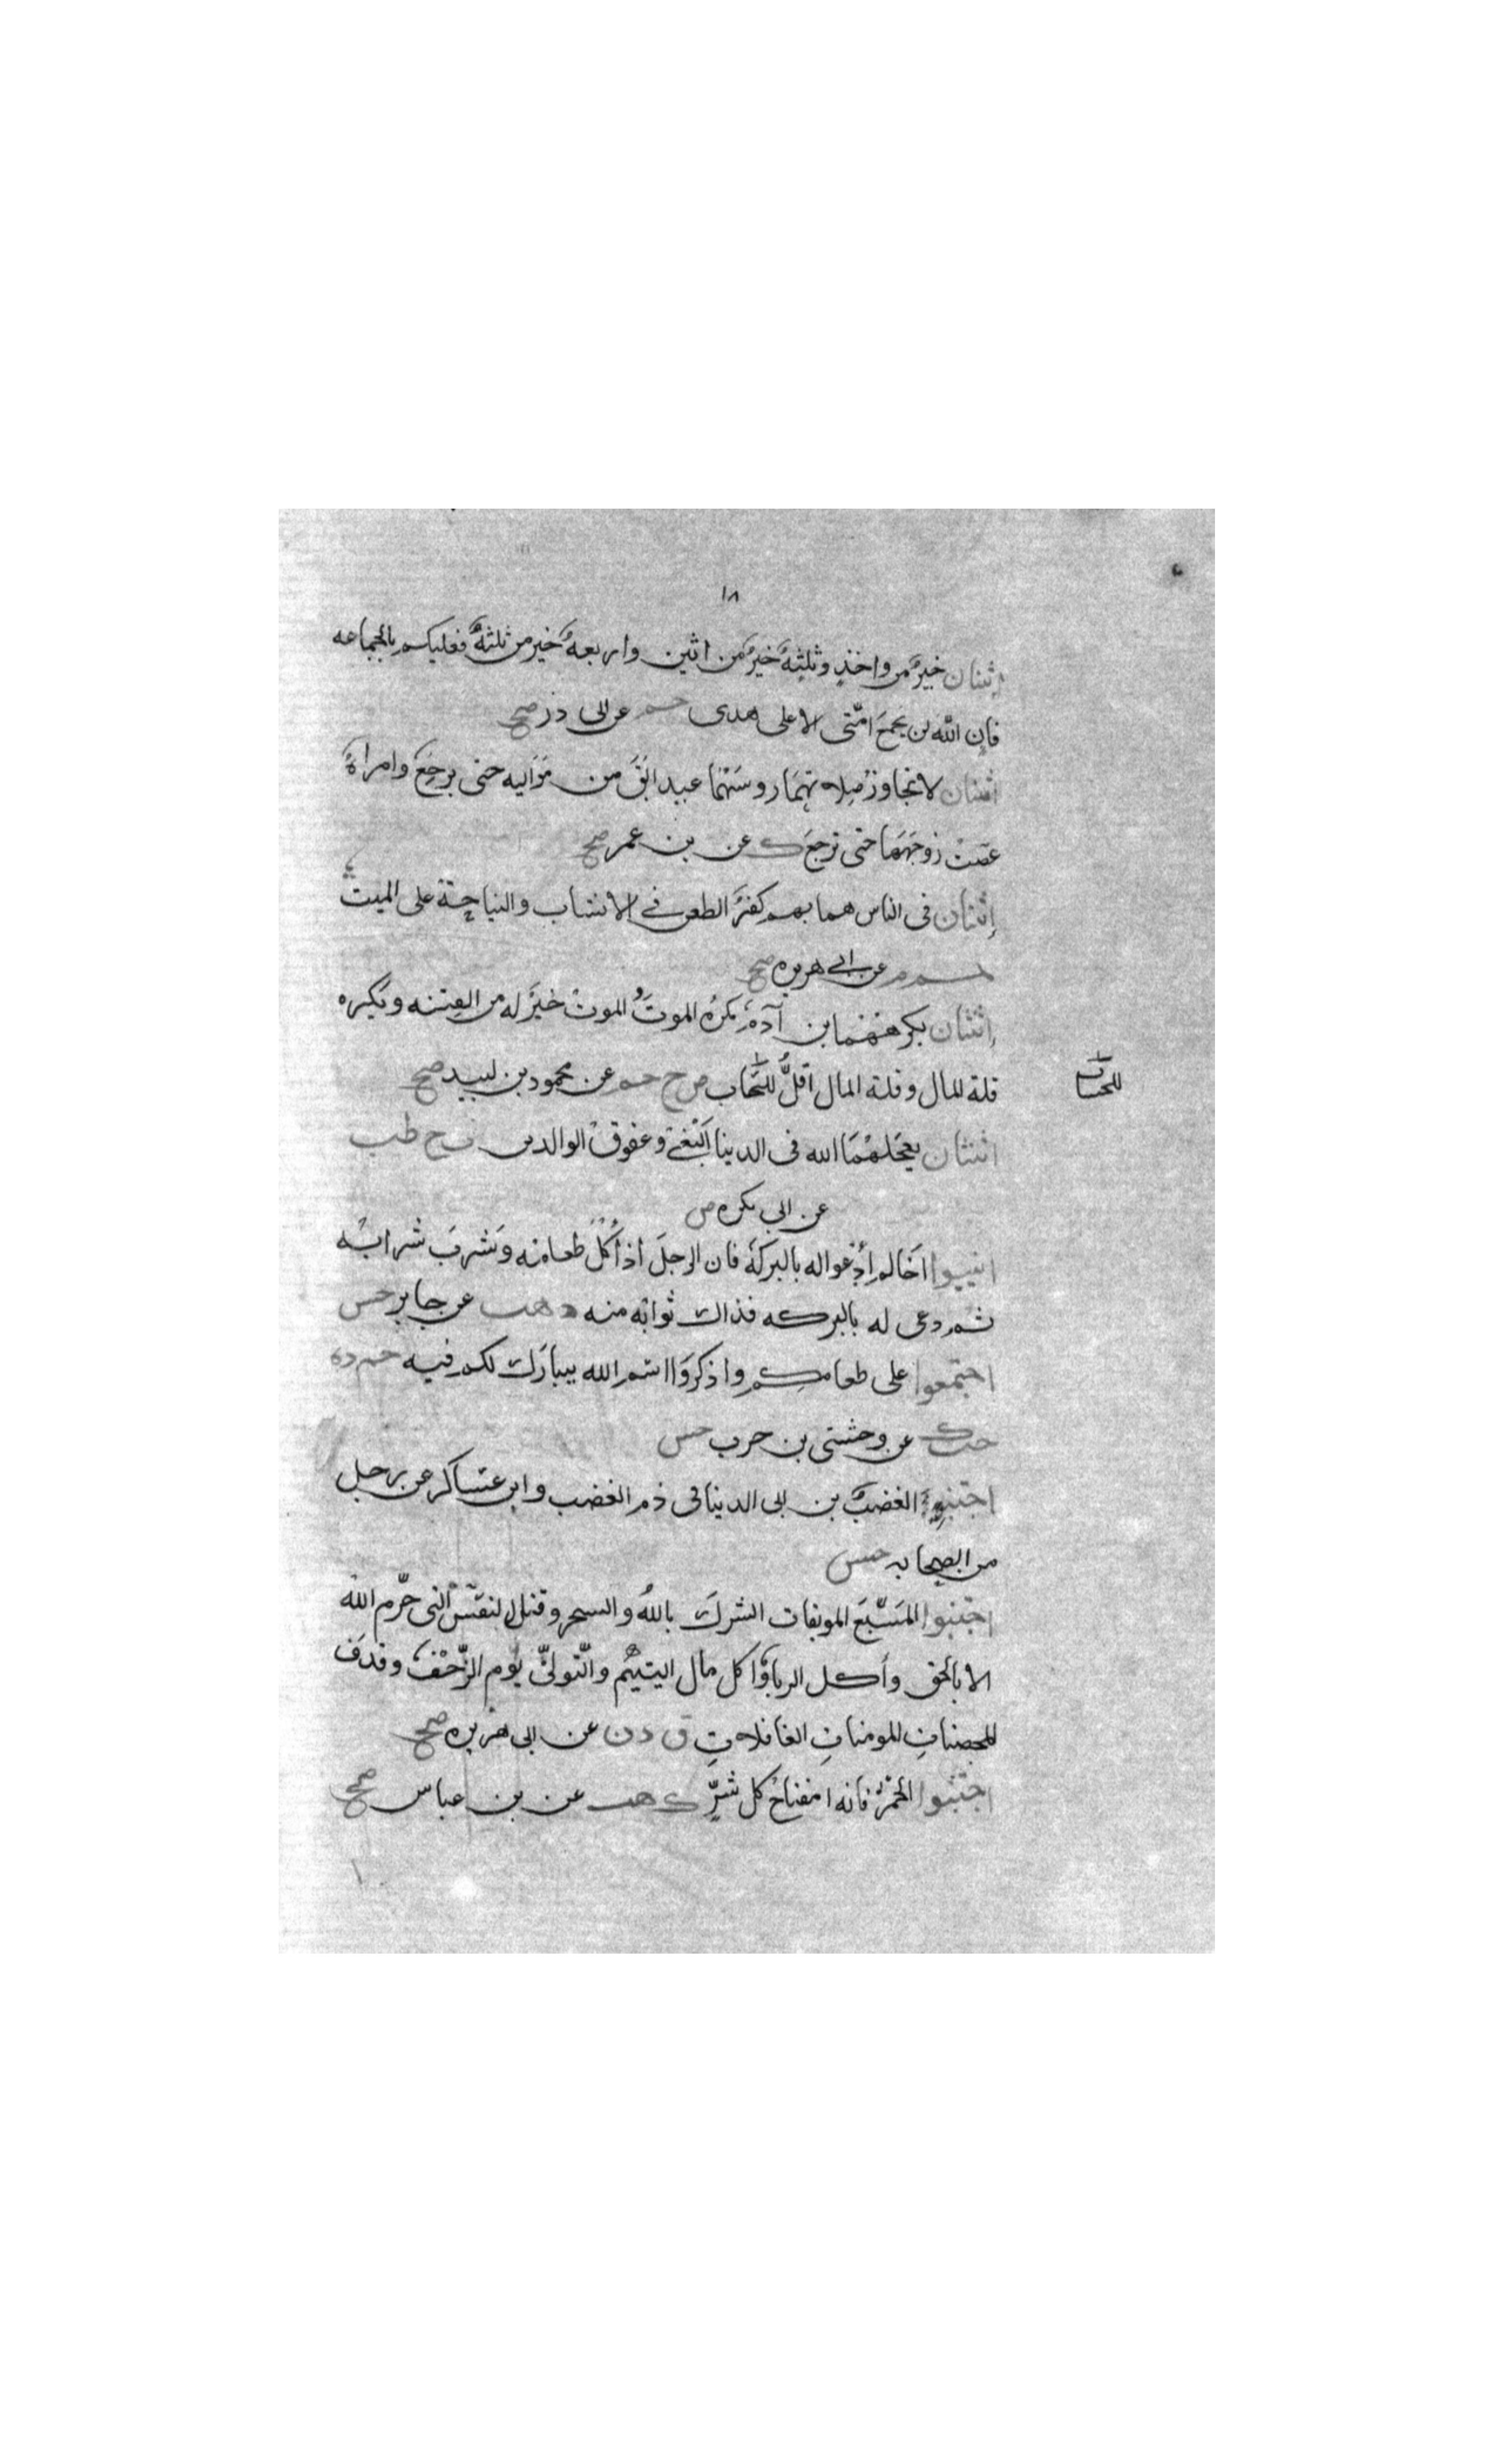 ١٨
اثنان خيرٌ من واحدٍ وثلثةٌ خيرٌ من اثنين واربعةٌ خير من ثلثةٍ فعليكم بالجماعه
فإن الله لن يجمعَ امّتى الا على هدى حم عن ابى ذر صح
اثنان لا تجاوز صلاتهما روسَهُما عبد ابقَ من مَوَاليه حتى يرجعَ وامراةٌ
عصت زوجَهَا حتى ترجعَ ك عن بن عمر صح
إثنان فى الناس هما بهم كفرٌ الطعن في الانساب والنياحة على الميت
حم م عن ابى هريره صح
إثنان يكرههما بن آدم يكرهُ الموتَ والموتُ خيرٌ له من الفتنه ويكره
قلة المال وقلة المال أقلُّ للحساب ص ح حم عن محمود بن لبيد صح
للحساب
اثنان يعجلهمَا الله فى الدينا البَغى وعقوق الوالدين تخ طب
عن ابى بكره ض
اثيبوا اخَاكم اُدْعواله بالبركة فان الرجلَ اذا أُكلَ طعامه وشربَ شرابُه
ثم دعى له بالبركه فذاك ثوابُه منه د هب عن جابر حسن
اجتمعوا على طعامكم واذكروا اسم الله يبارَك لكم فيه حم د ه
حب ك عن وحشى بن حرب حسن
اجتنبوا الغضبَ بن ابى الدينا فى ذم الغضب وابن عساكر عن رجل
من الصحابه حسن
اجتنبوا السَبْعَ الموبقات الشركَ باللهِ والسحر وقتل النفس التى حرّم الله
الا بالحق وأكل الربا واكل مال اليتيم والتّولى يوم الزّحْف وقذف
المحصناتِ المومناتِ الغافلاتِ ق د ن عن ابى هريره صح
اجتنبوا الخمْرَ فانها مفتاحُ كل شرٍّ ك هب عن بن عباس صح